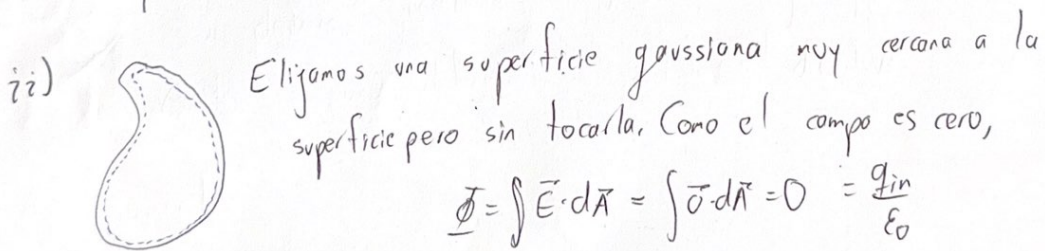 ii) Elijamos una superficie gaussiana muy cercana a la
superficie pero sin tocarla. Como el campo es cero,
Φ = ∫ E⃗·dA⃗ = ∫ 0⃗·dA⃗ = 0 = qin/ε0